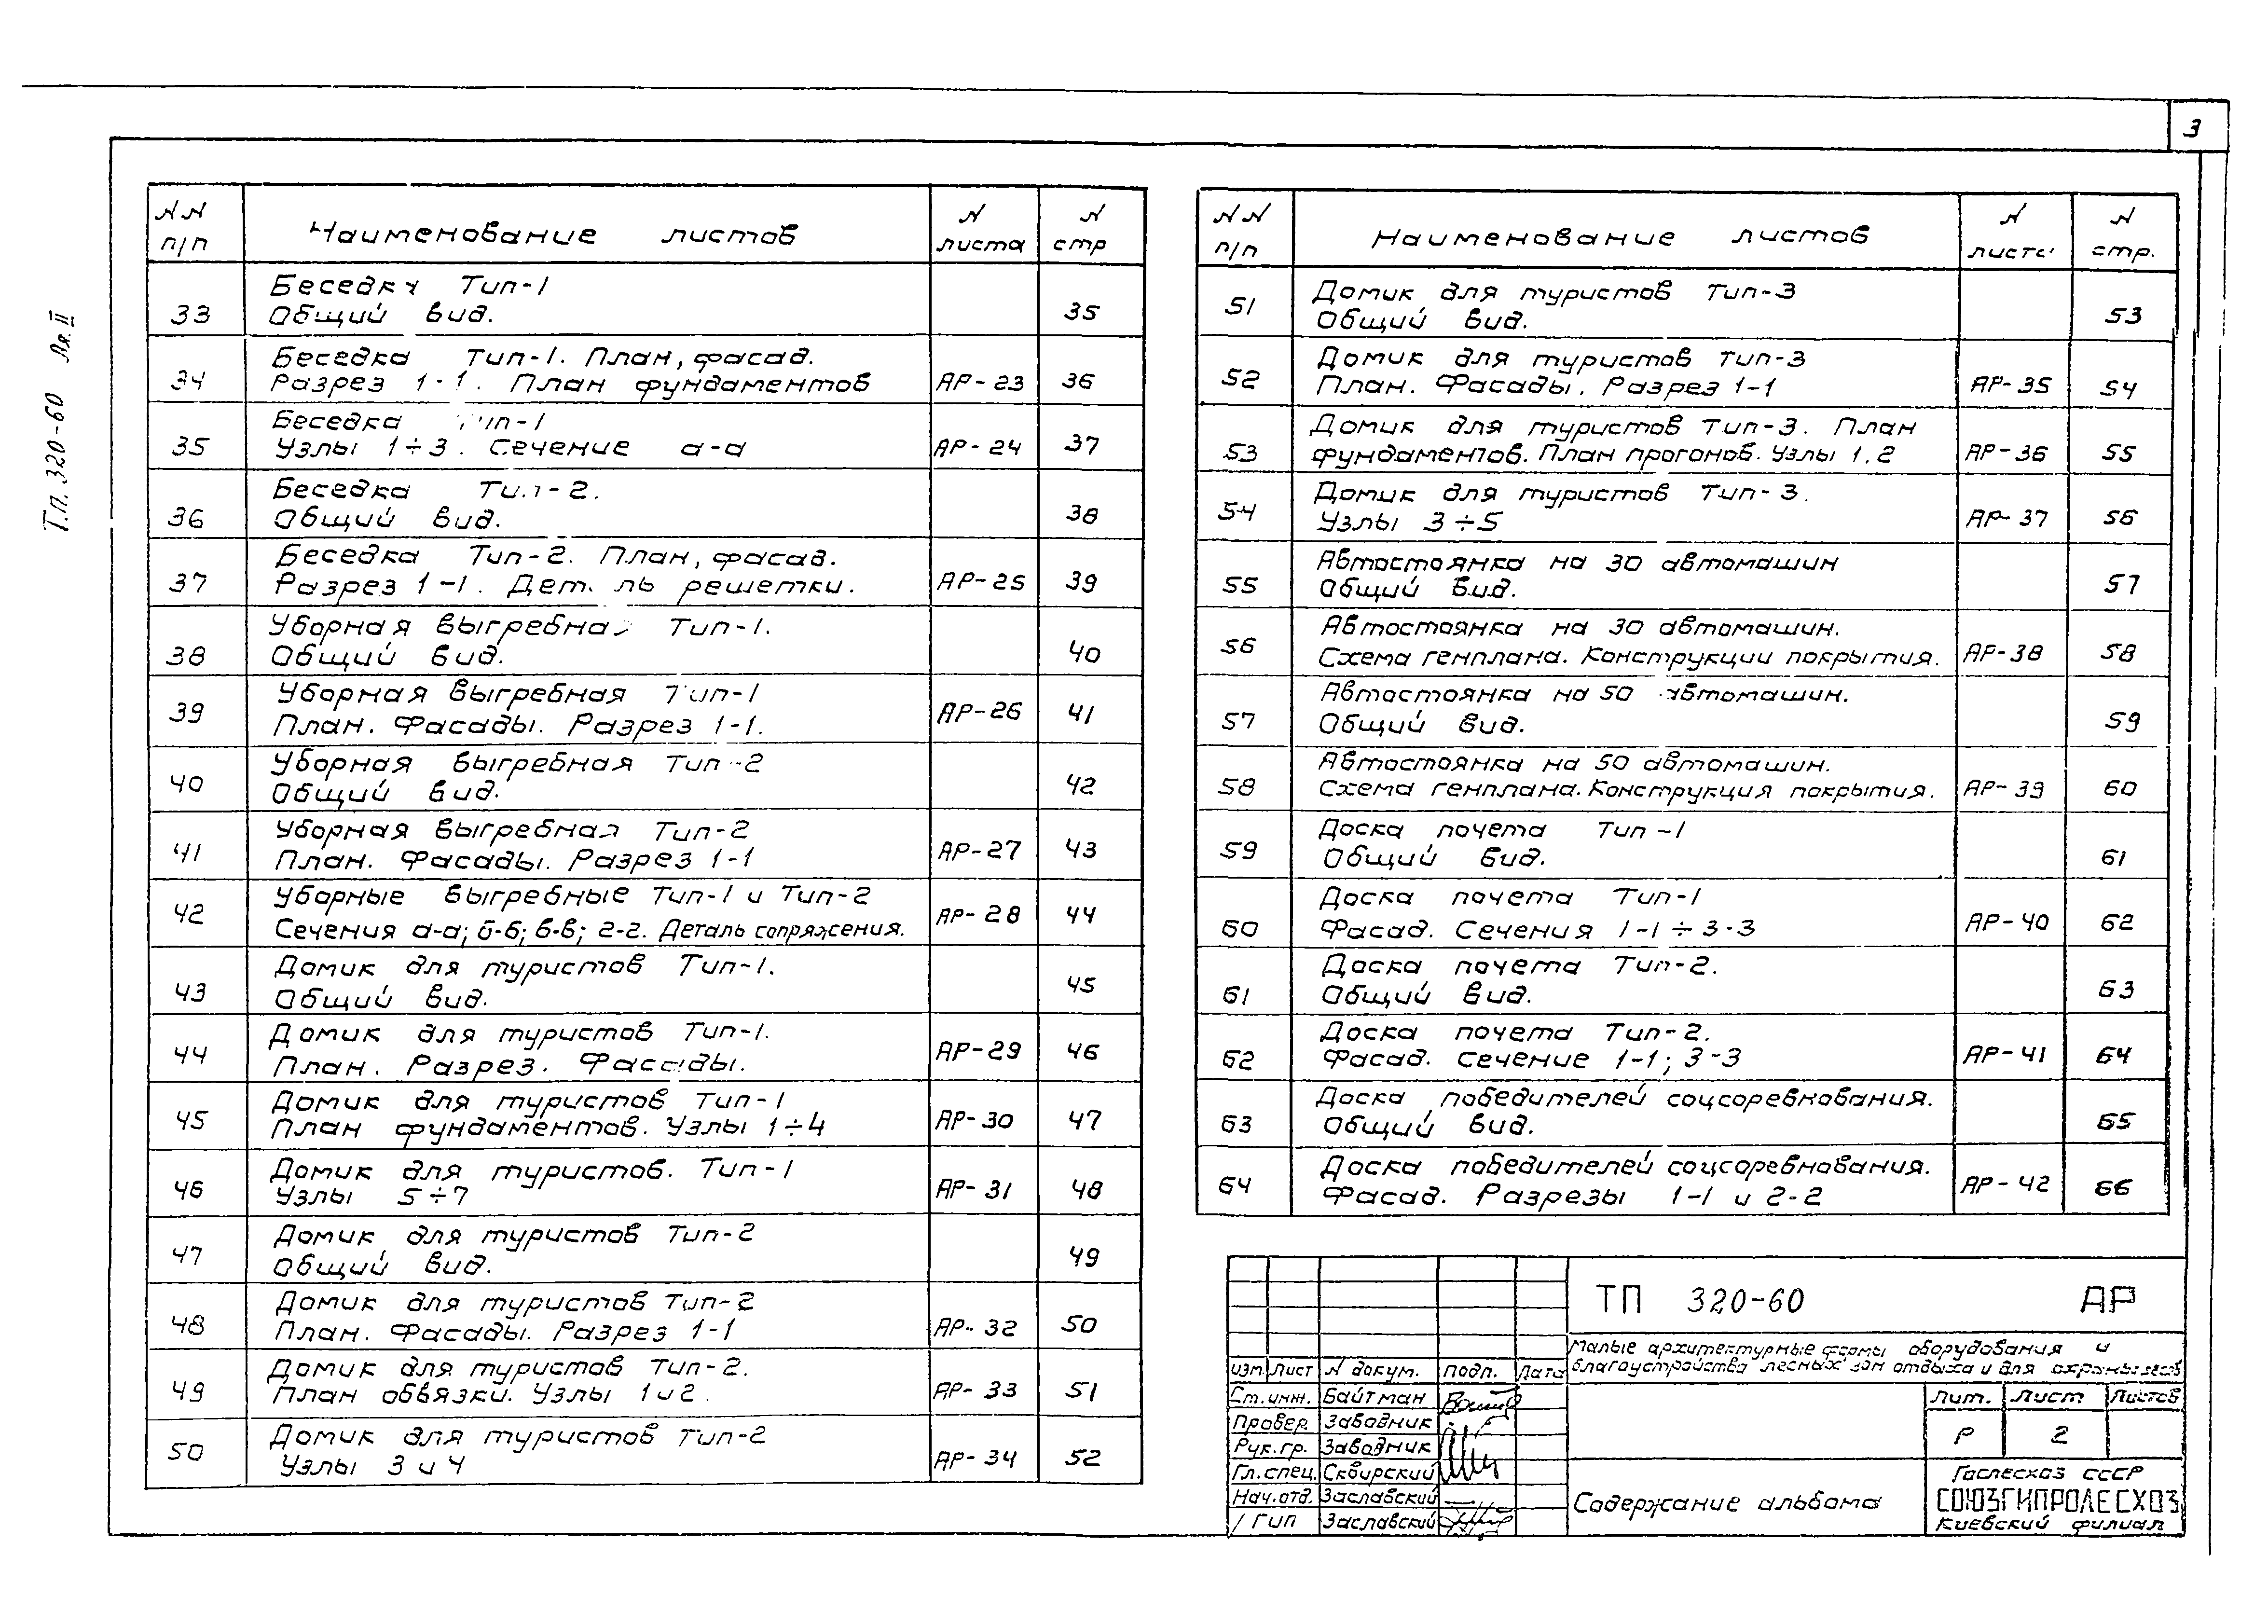 3
Т.п. 320-60 Ал. II
NN п/п Наименование листов N листа N стр
33 Беседка Тип-1
Общий вид. 35
34 Беседка Тип-1. План, фасад.
Разрез 1-1. План фундаментов АР-23 36
35 Беседка Тип-1
Узлы 1÷3. Сечение а-а АР-24 37
36 Беседка Тип-2.
Общий вид. 38
37 Беседка Тип-2. План, фасад.
Разрез 1-1. Деталь решетки. АР-25 39
38 Уборная выгребная Тип-1.
Общий вид. 40
39 Уборная выгребная Тип-1
План. Фасады. Разрез 1-1. АР-26 41
40 Уборная выгребная Тип-2
Общий вид. 42
41 Уборная выгребная Тип-2
План. Фасады. Разрез 1-1 АР-27 43
42 Уборные выгребные Тип-1 и Тип-2
Сечения а-а; б-б; в-в; г-г. Деталь сопряжения. АР-28 44
43 Домик для туристов Тип-1.
Общий вид. 45
44 Домик для туристов Тип-1.
План. Разрез. Фасады. АР-29 46
45 Домик для туристов Тип-1
План фундаментов. Узлы 1÷4 АР-30 47
46 Домик для туристов. Тип-1
Узлы 5÷7 АР-31 48
47 Домик для туристов Тип-2
Общий вид. 49
48 Домик для туристов Тип-2
План. Фасады. Разрез 1-1 АР-32 50
49 Домик для туристов Тип-2.
План обвязки. Узлы 1 и 2. АР-33 51
50 Домик для туристов Тип-2
Узлы 3 и 4 АР-34 52
NN п/п Наименование листов N листа N стр.
51 Домик для туристов Тип-3
Общий вид. 53
52 Домик для туристов Тип-3
План. Фасады. Разрез 1-1 АР-35 54
53 Домик для туристов Тип-3. План
фундаментов. План прогонов. Узлы 1,2 АР-36 55
54 Домик для туристов Тип-3.
Узлы 3÷5 АР-37 56
55 Автостоянка на 30 автомашин
Общий вид. 57
56 Автостоянка на 30 автомашин.
Схема генплана. Конструкции покрытия. АР-38 58
57 Автостоянка на 50 автомашин.
Общий вид. 59
58 Автостоянка на 50 автомашин.
Схема генплана. Конструкция покрытия. АР-39 60
59 Доска почета Тип-1
Общий вид. 61
60 Доска почета Тип-1
Фасад. Сечения 1-1÷3-3 АР-40 62
61 Доска почета Тип-2.
Общий вид. 63
62 Доска почета Тип-2.
Фасад. Сечение 1-1; 3-3 АР-41 64
63 Доска победителей соцсоревнования.
Общий вид. 65
64 Доска победителей соцсоревнования.
Фасад. Разрезы 1-1 и 2-2 АР-42 66
ТП 320-60 АР
Малые архитектурные формы оборудования и
благоустройства лесных зон отдыха и для охраны лесов
Изм. Лист N докум. Подп. Дата
Ст. инж. Байтман
Провер. Заводник
Рук. гр. Заводник
Гл. спец. Сквирский
Нач. отд. Заславский
ГИП Заславский
Лит. Лист Листов
Р 2
Содержание альбома
Гослесхоз СССР
СОЮЗГИПРОЛЕСХОЗ
Киевский филиал